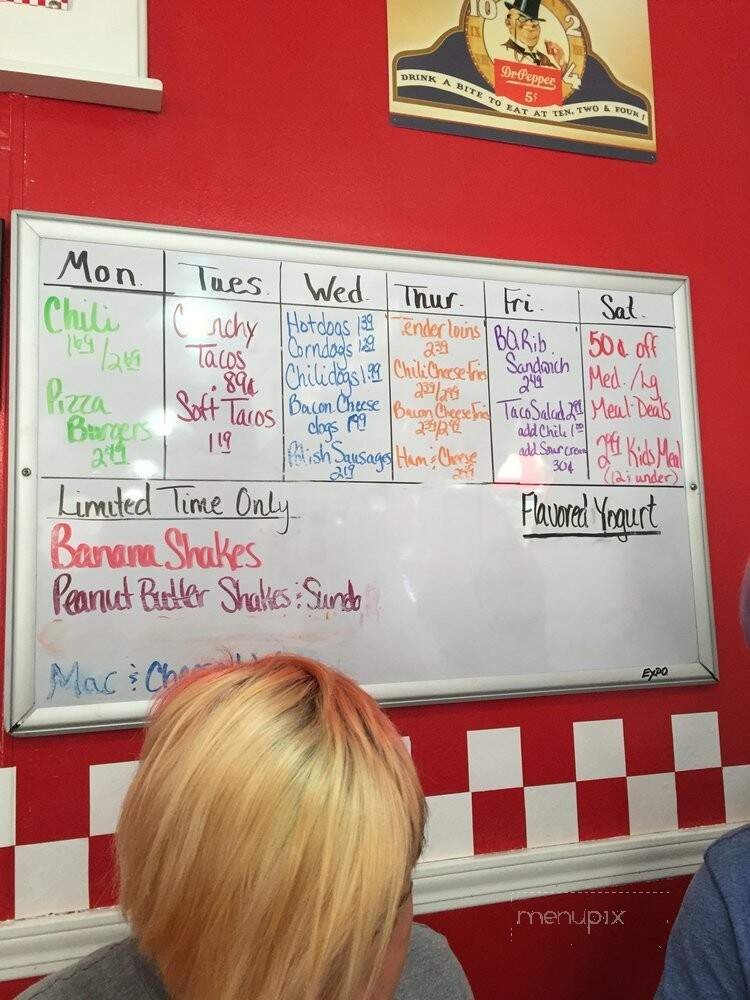 10
2
4
Dr Pepper
5¢
DRINK A BITE TO EAT AT TEN, TWO & FOUR!
Mon.
Chili
1 69 / 2 69
Pizza
Burgers
2 49
Tues.
Crunchy
Tacos
.89¢
Soft Tacos
1 19
Wed.
Hotdogs 1 39
Corndogs 1 29
Chilidogs 1.99
Bacon Cheese
dogs 1 99
Polish Sausages
2 19
Thur.
Tenderloins
2 39
Chili Cheese Fries
2 39/2 99
Bacon Cheese Fries
2 39/2 99
Ham & Cheese
Fri.
BQ Rib
Sandwich
2 49
Taco Salad 2 99
add Chili 1 00
add Sour cream
30¢
Sat.
50¢ off
Med. / Lg
Meal Deals
2 99 Kids Meal
(12 & under)
Limited Time Only
Banana Shakes
Peanut Butter Shakes & Sunda
Mac &
Flavored Yogurt
EXPO
menupix